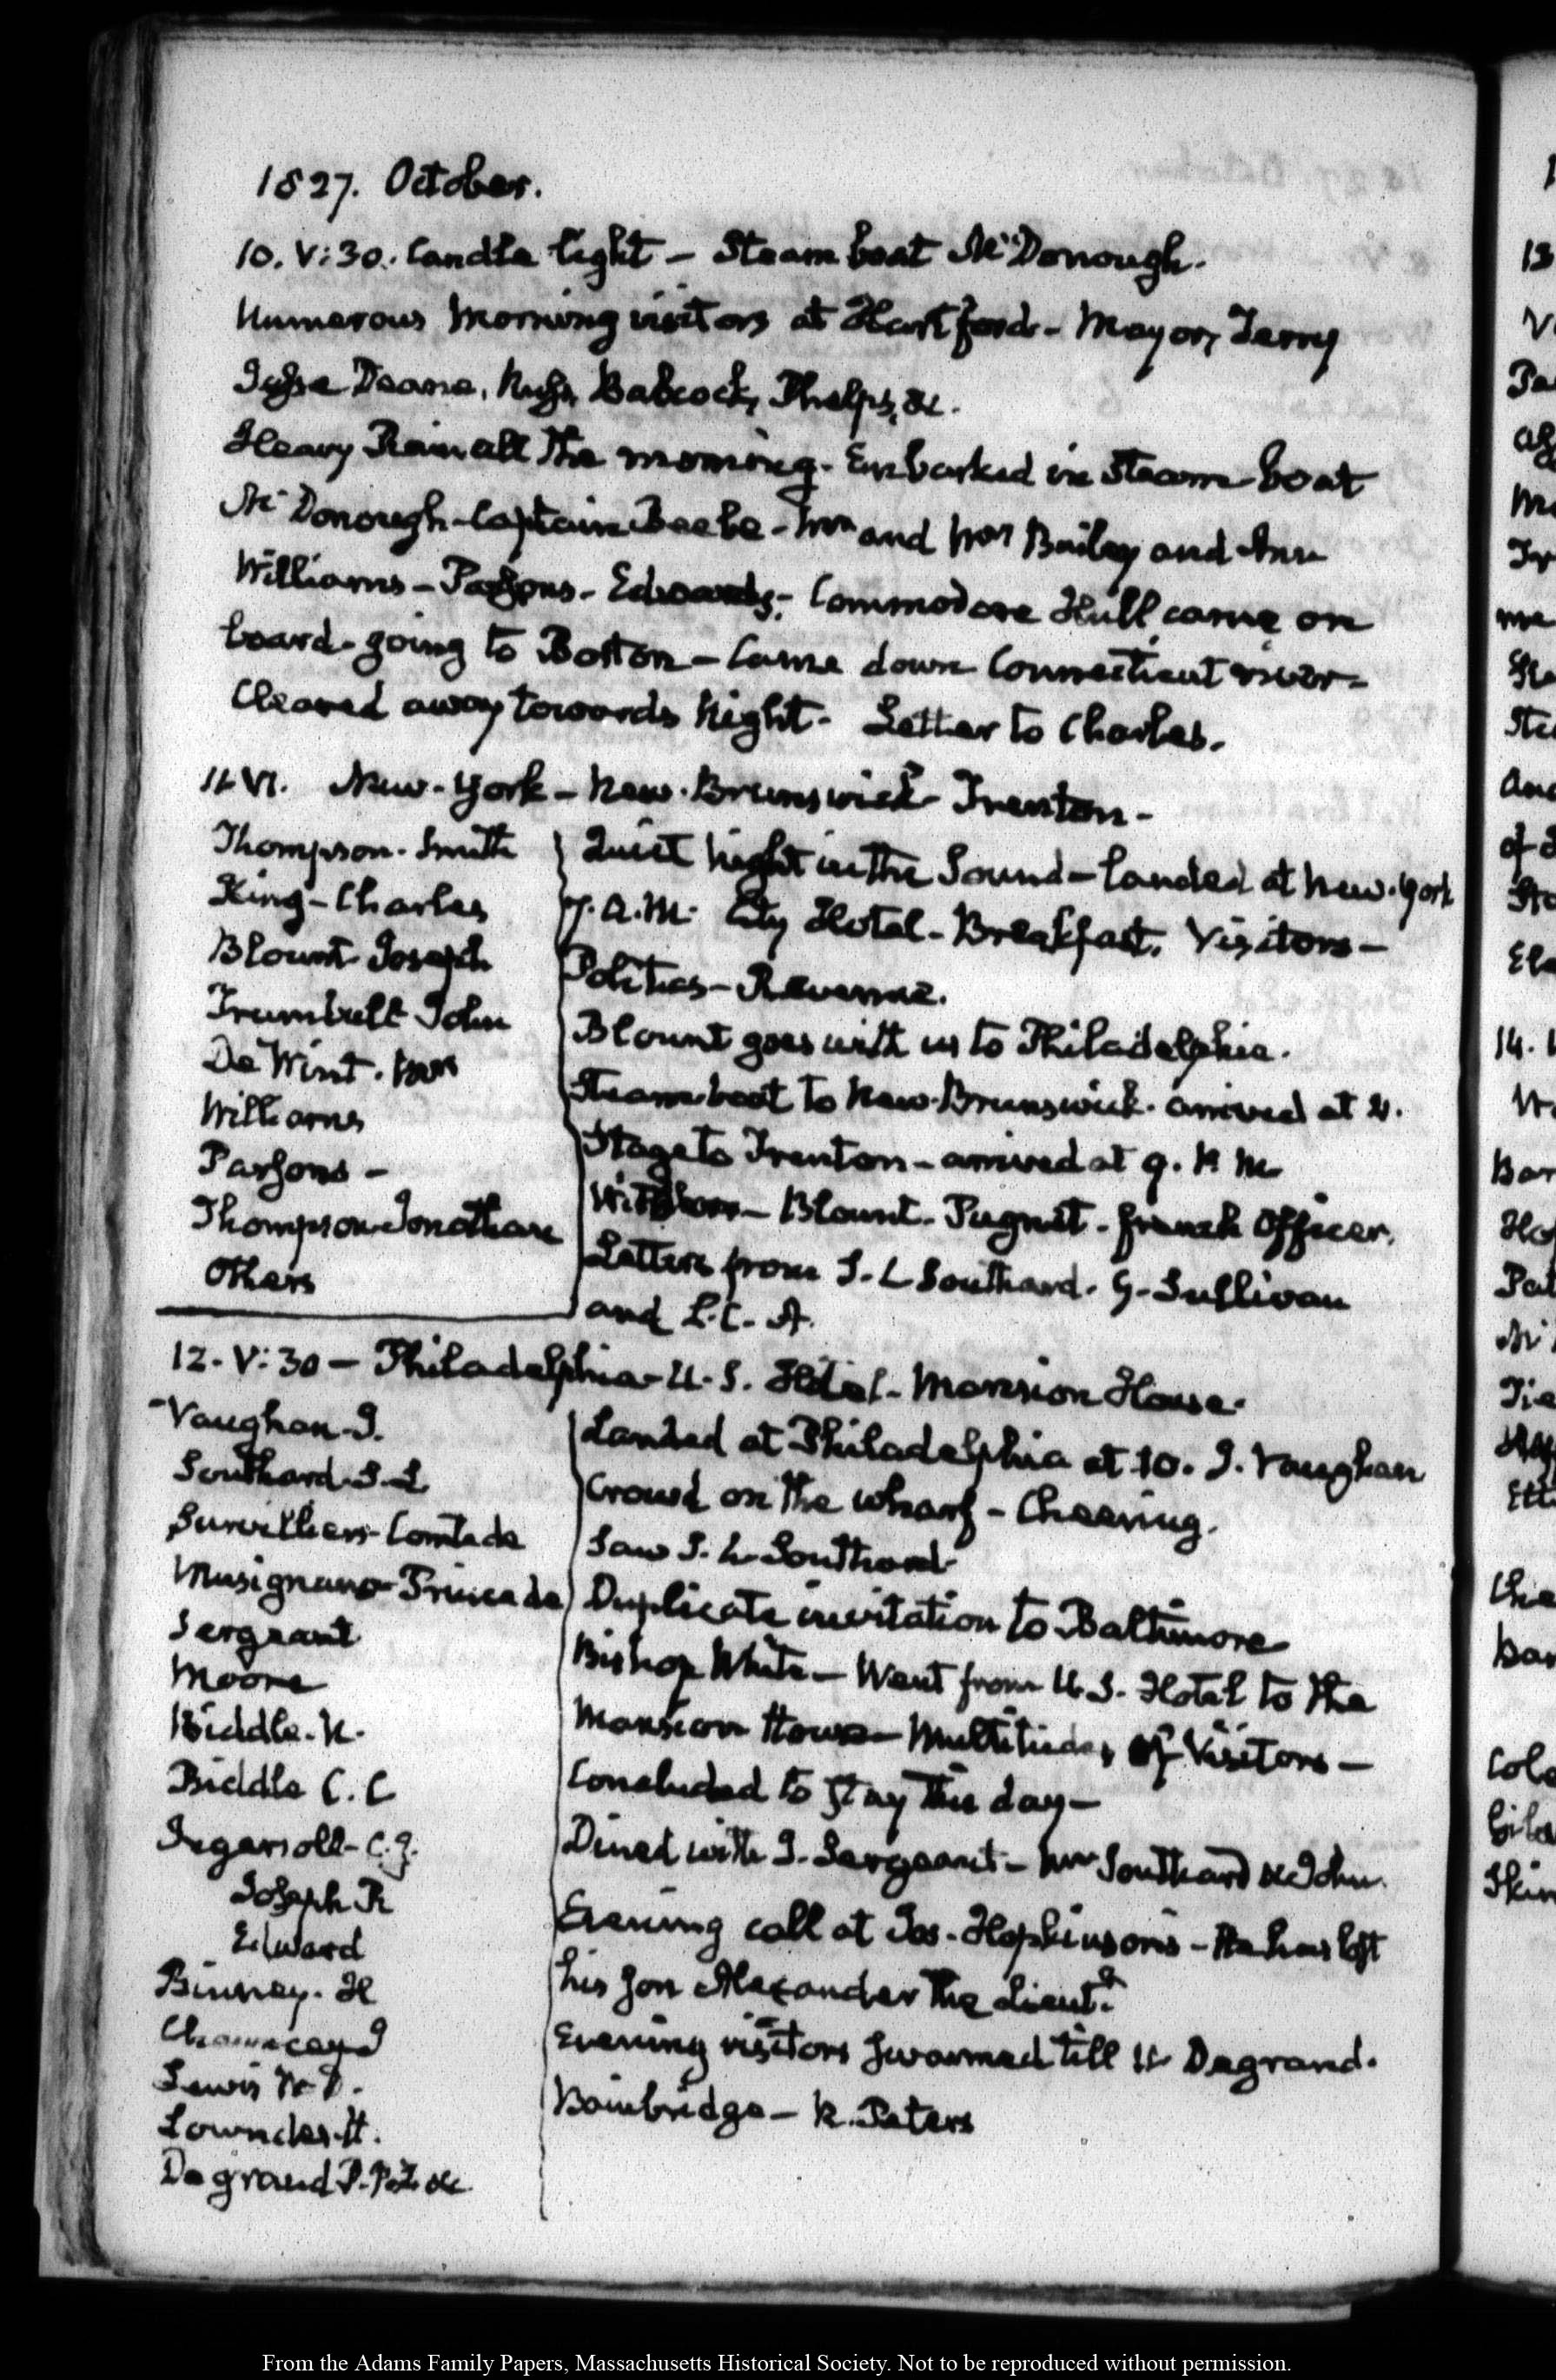 1827. October.
10. V:30. Candle light – Steam boat McDonough.
Numerous morning visitors at Hartford – Mayor, Terry
Deane, Babcock, Phelps, &c.
Heavy Rain all the morning. Embarked in Steam-boat
McDonough – Captain Beebe – Mr and Mrs Bailey and Ann
Williams – Parsons – Edwards. Commodore Hull came on
board – going to Boston – Came down Connecticut river –
Cleared away towards Night. Letter to Charles.
11. VI. New-York – New-Brunswick Trenton –
Thompson – Smith
King – Charles
Blount Joseph
Trumbull John
De Wint. Mrs
Williams
Parsons –
Thompson Jonathan
Others
Quiet night in the Sound – landed at New-York
7. A.M. City Hotel – Breakfast. Visitors –
Politics – Revenue.
Blount goes with us to Philadelphia.
Steam-boat to New-Brunswick. arrived at
Stage to Trenton – arrived at 9. P.M.
Visitors – Blount. Pugnet. French Officer.
Letters from S. L Southard. G. Sullivan
and L. C. A.
12. V:30 – Philadelphia – U.S. Hotel – Mansion House.
Vaughan J.
Southard S. L
Survilliers – Comte de
Musignano – Prince de
Sergeant
Moore
Biddle. N.
Biddle C. C
Ingersoll – C. J.
Joseph R
Edward
Binney. H
Chauncey
Lewis W. D.
Lowndes
Degrand P. P. F. &c
Landed at Philadelphia at 10. J. Vaughan
Crowd on the wharf – Cheering.
Saw S. L. Southard
Duplicate invitation to Baltimore
Bishop White – Went from U.S. Hotel to the
Mansion House – Multitudes of Visitors –
Concluded to stay this day –
Dined with J. Sergeant – Mr Southard & John.
Evening call at Jos. Hopkinson's – He has lost
his son Alexander the Lieut.
Evening visitors swarmed till 11 Degrand.
Bainbridge – R. Peters
From the Adams Family Papers, Massachusetts Historical Society. Not to be reproduced without permission.